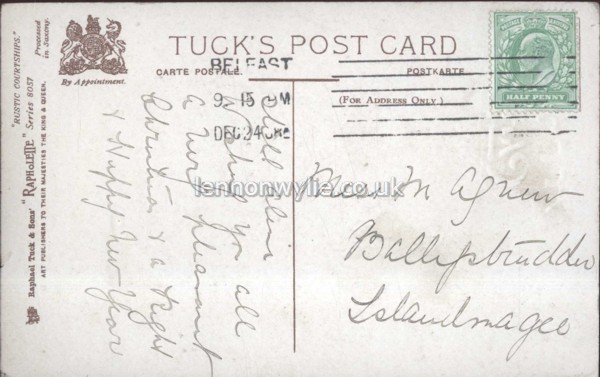 TUCK'S POST CARD
CARTE POSTALE.
POSTKARTE
(FOR ADDRESS ONLY.)
By Appointment.
"RUSTIC COURTSHIPS." Processed in Saxony.
Raphael Tuck & Sons' "RAPHOLETTE" Series 8057
ART PUBLISHERS TO THEIR MAJESTIES THE KING & QUEEN.
BELFAST
9 15 PM
DEC 24
HALF PENNY
Wishing you all
a very pleasant
Christmas & a Right
& Happy New Year
Miss M Agnew
Ballystrudder
Islandmagee
lennonwylie.co.uk